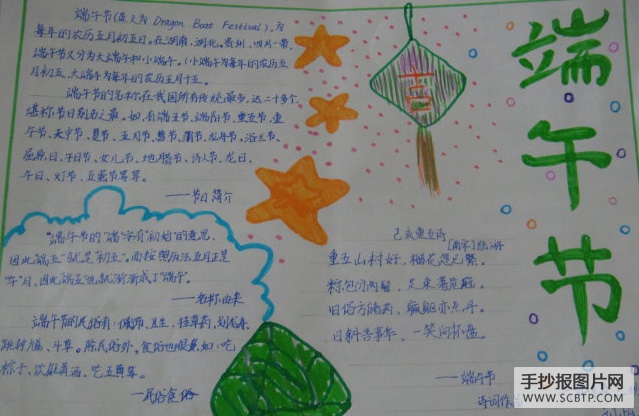 端午节
端午节(英文为 Dragon Boat Festival),为
每年的农历五月初五日。在湖南、湖北、贵州、四川一带,
端午节又分为大端午和小端午。(小端午为每年的农历五
月初五,大端午为每年的农历五月十五。
端午节的名称在我国所有传统最多,达二十多个,
堪称节日别名之最。如,有端五节、端阳节、重五节、重
午节、天中节、夏节、五月节、菖节、蒲节、龙舟节、浴兰节、
屈原日、午日节、女儿节、地腊节、诗人节、龙日、
午日、灯节、五蛋节等等。
——节日简介
"端午节的"端"字有"初始"的意思,
因此"端五"就是"初五"。而按照历法五月正是
"午"月,因此端五也就渐渐成了"端午"。
——名称由来
端午节的民俗有:佩 挂草药、划龙舟、
斗草。除民俗外,食俗也
粽子、饮雄黄酒、吃五毒
——民俗食俗
己亥重五诗
[南宋]陆游
重五山村好,榴花忽已繁。
粽包分两髻,艾束著危冠。
旧俗方储药,羸躯亦点丹。
日斜吾事毕,一笑向杯盘。
——端午节
诗词作
手抄报图片网
WWW.SCBTP.COM